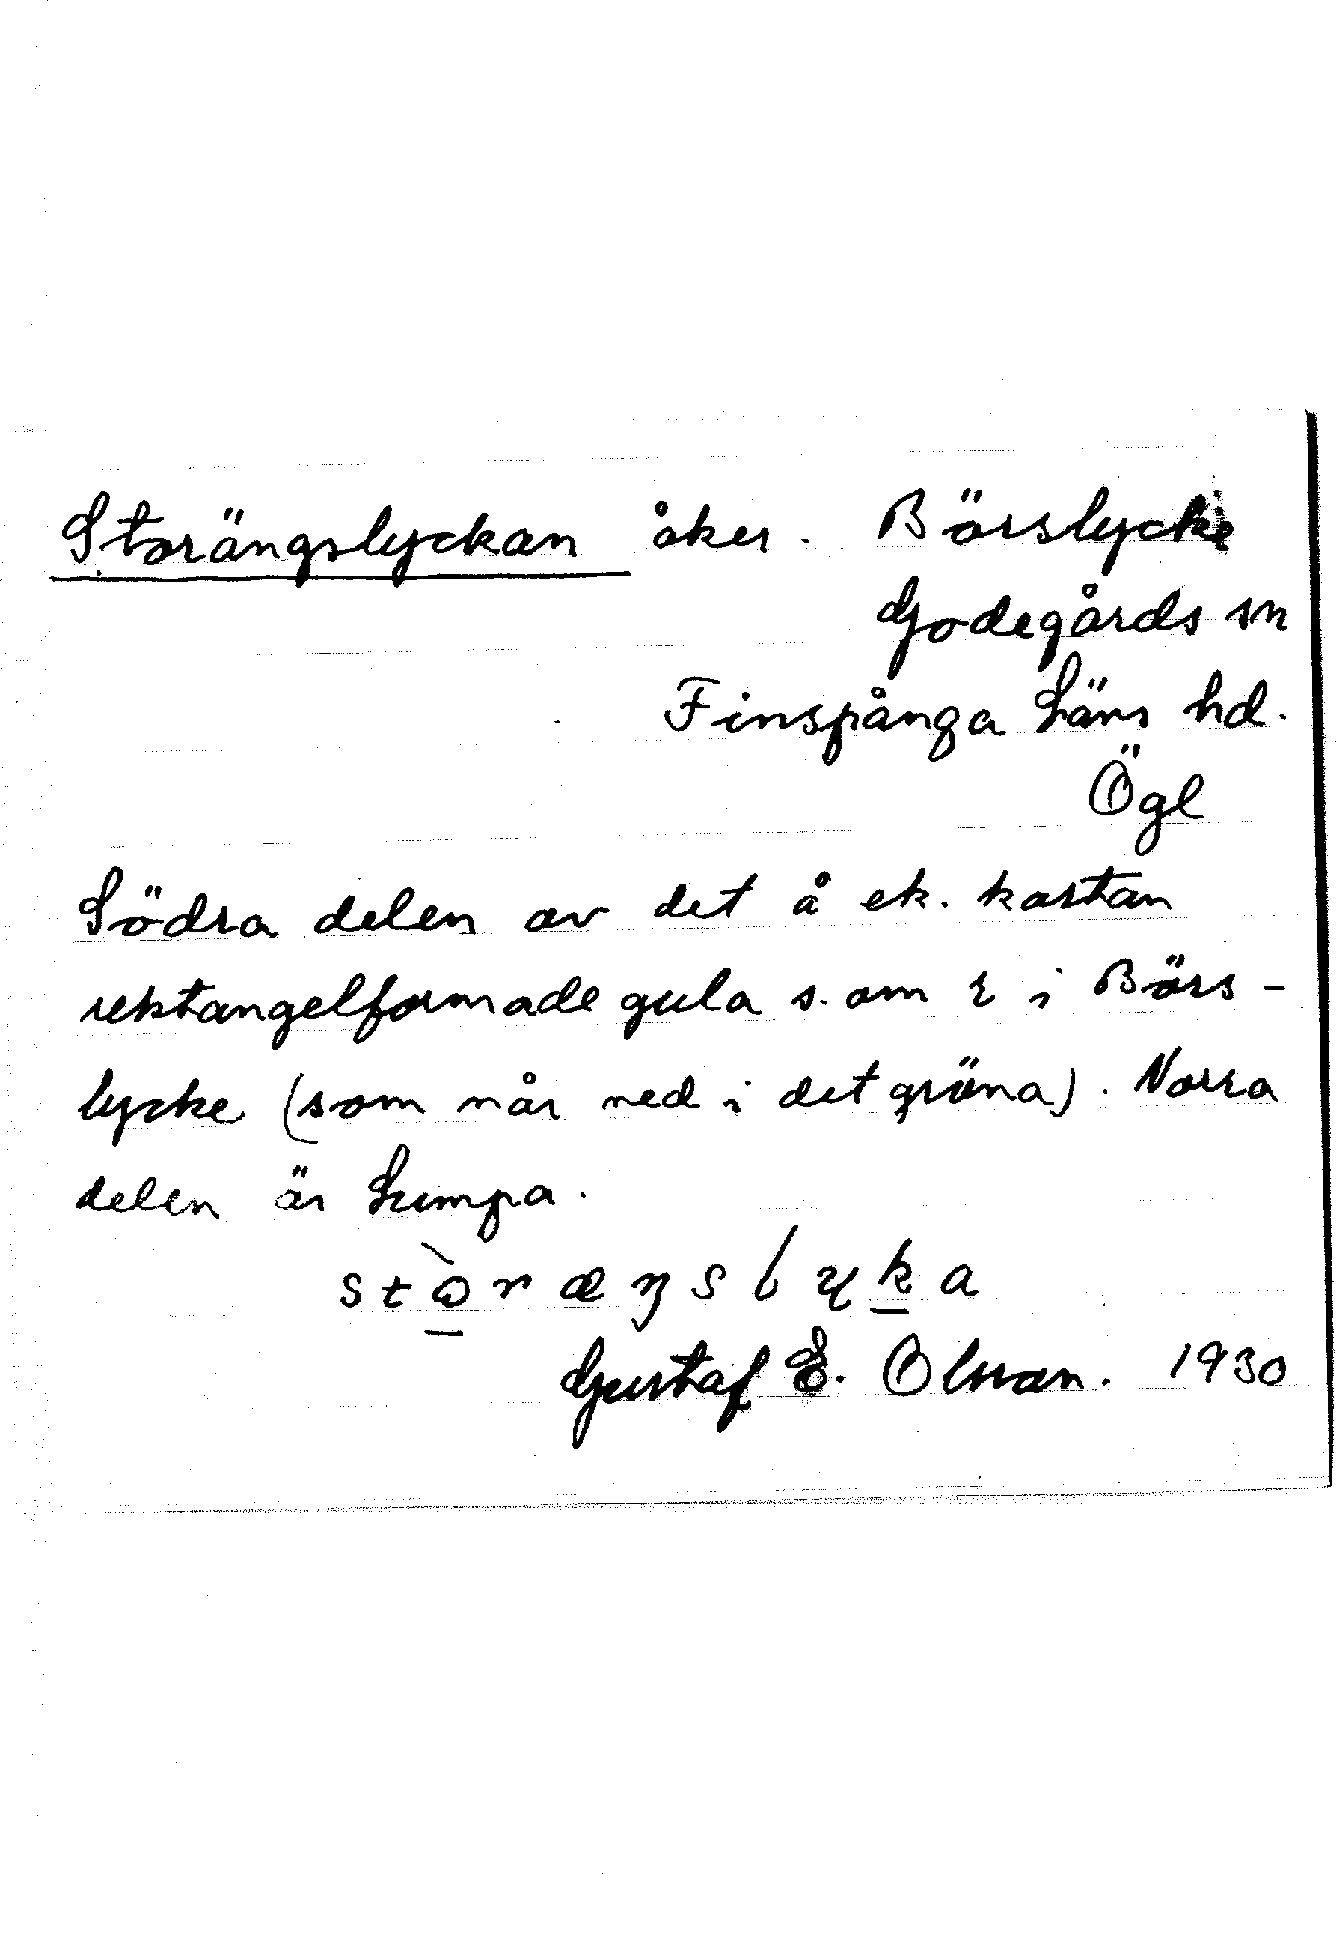 Storängslyckan åker. Börslycke
Godegårds sn
Finspånga Läns hd.
Ögl
Södra delen av det å ek. kartan
rektangelformade gula s. om r i Börs-
lycke (som når ned i det gröna). Norra
delen är Lumpa.
stòræŋslyka
Gustaf E. Olsson. 1930